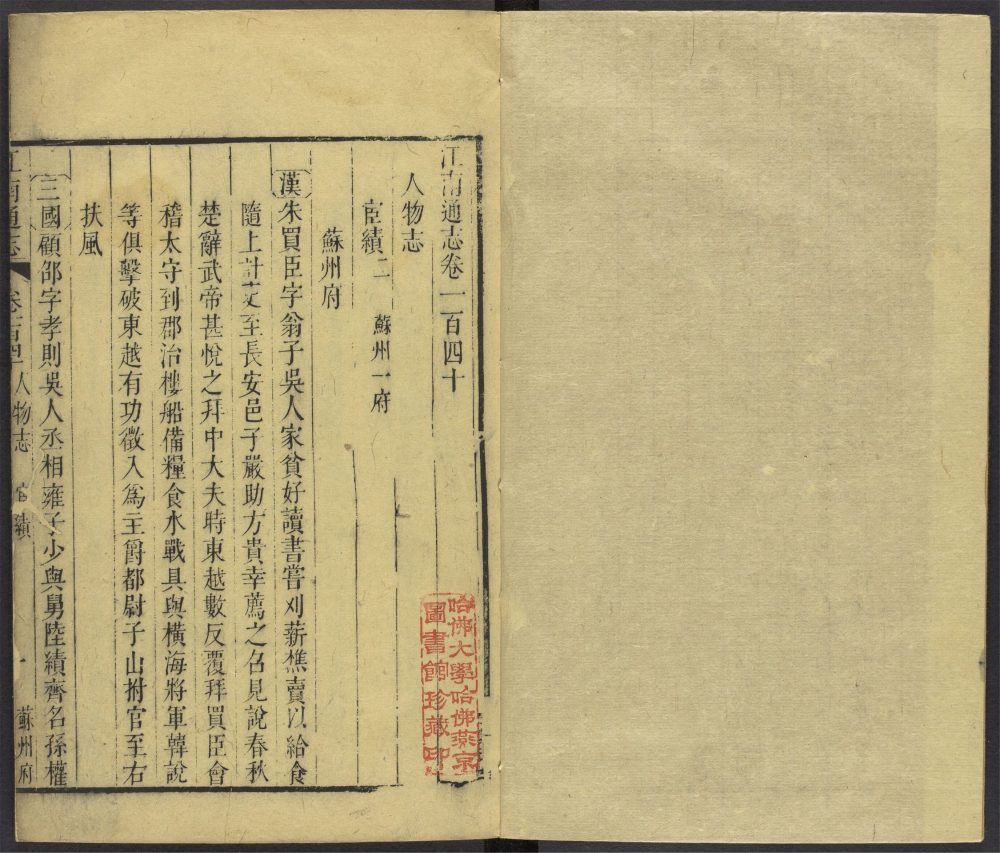 江南通志卷一百四十
人物志
宦績二 蘇州一府
蘇州府
漢朱買臣字翁子吳人家貧好讀書嘗刈薪樵賣以給食
隨上計吏至長安邑子嚴助方貴幸薦之召見說春秋
楚辭武帝甚悅之拜中大夫時東越數反覆拜買臣會
稽太守到郡治樓船備糧食水戰具與橫海將軍韓說
等俱擊破東越有功徵入爲主爵都尉子山拊官至右
扶風
三國顧邵字孝則吳人丞相雍子少與舅陸績齊名孫權
江南通志 卷 人物志 宦績 一 蘇州府
哈佛大學哈佛燕京
圖書館珍藏印